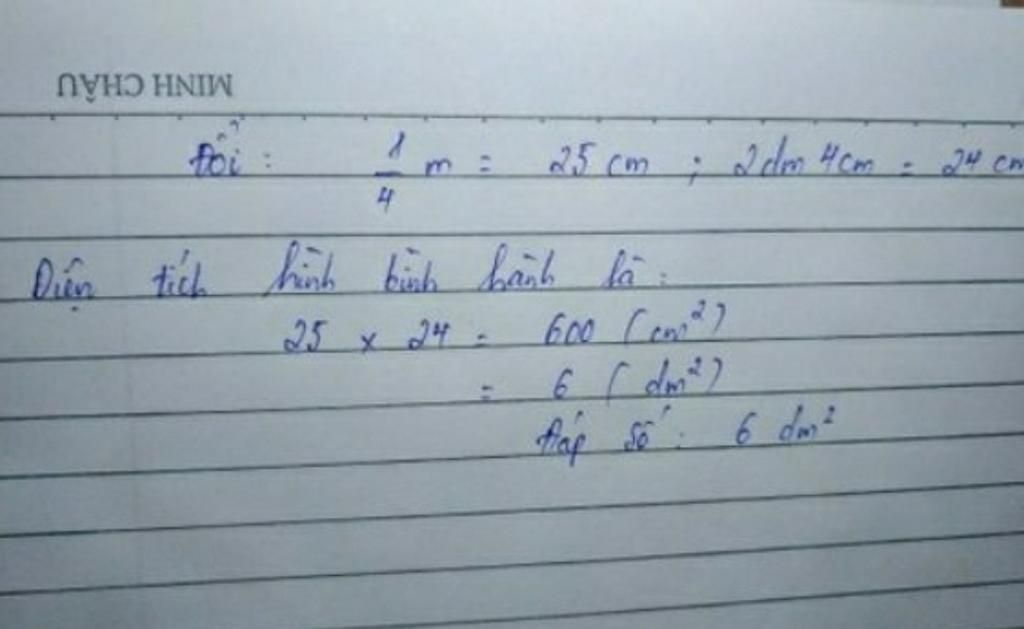 MINH CHÂU
Đổi : 1/4 m = 25 cm ; 2dm 4cm = 24 cm
Diện tích hình bình hành là :
25 x 24 = 600 (cm²)
= 6 (dm²)
Đáp số : 6 dm²